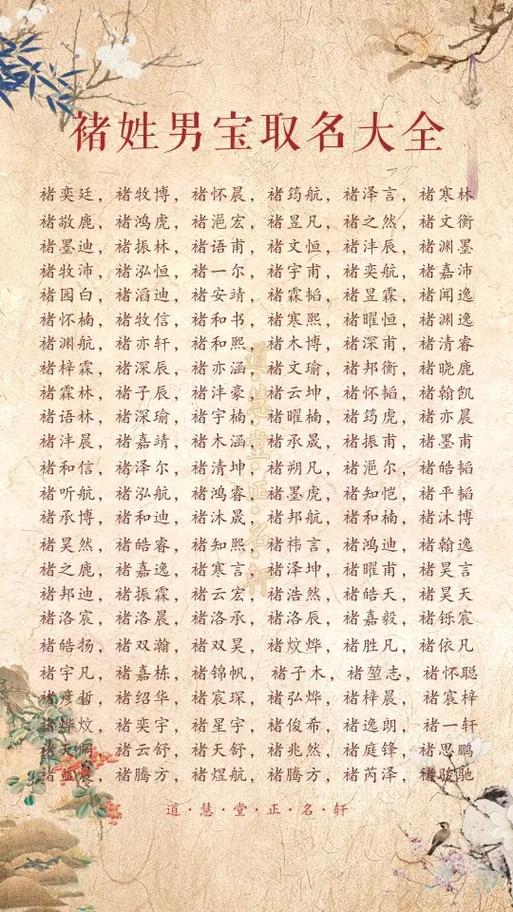 褚姓男宝取名大全
褚奕廷，褚牧博，褚怀晨，褚筠航，褚泽言，褚寒林
褚敬鹿，褚鸿虎，褚浥宏，褚昱凡，褚之然，褚文衡
褚墨迪，褚振林，褚语甫，褚文恒，褚沣辰，褚渊墨
褚牧沛，褚泓恒，褚一尔，褚宇甫，褚奕航，褚嘉沛
褚园白，褚滔迪，褚安靖，褚霖韬，褚昱霖，褚闻逸
褚怀楠，褚牧信，褚和书，褚寒熙，褚曜恒，褚渊逸
褚渊航，褚亦轩，褚和熙，褚木博，褚深甫，褚清睿
褚梓霖，褚深辰，褚亦涵，褚文瑜，褚邦衡，褚晓鹿
褚霖林，褚子辰，褚沣豪，褚云坤，褚怀韬，褚翰凯
褚语林，褚深瑜，褚宇楠，褚曜楠，褚筠虎，褚亦晨
褚沣晨，褚嘉靖，褚木涵，褚承晟，褚振甫，褚墨甫
褚和信，褚泽尔，褚清坤，褚朔凡，褚浥尔，褚皓韬
褚听航，褚泓航，褚鸿睿，褚墨虎，褚知恺，褚平韬
褚承博，褚和迪，褚沐晟，褚邦航，褚和楠，褚沐博
褚昊然，褚皓睿，褚知熙，褚祎言，褚鸿迪，褚翰逸
褚之鹿，褚嘉逸，褚寒言，褚泽坤，褚曜甫，褚昊言
褚邦迪，褚振霖，褚云宏，褚浩然，褚皓天，褚昊天
褚洛宸，褚洛晨，褚洛承，褚洛辰，褚嘉毅，褚铄宸
褚皓扬，褚双瀚，褚双昊，褚炆烨，褚胜凡，褚依凡
褚宇凡，褚嘉栋，褚锦帆，褚子木，褚堃志，褚怀聪
褚彦哲，褚绍华，褚宸琛，褚弘烨，褚梓晨，褚宸梓
褚烨炆，褚奕宇，褚星宇，褚俊希，褚逸朗，褚一轩
褚天，褚云舒，褚天舒，褚兆然，褚庭锋，褚思鹏
褚，褚腾方，褚煜航，褚腾方，褚芮泽，褚骏驰
道·慧·堂·正·名·轩